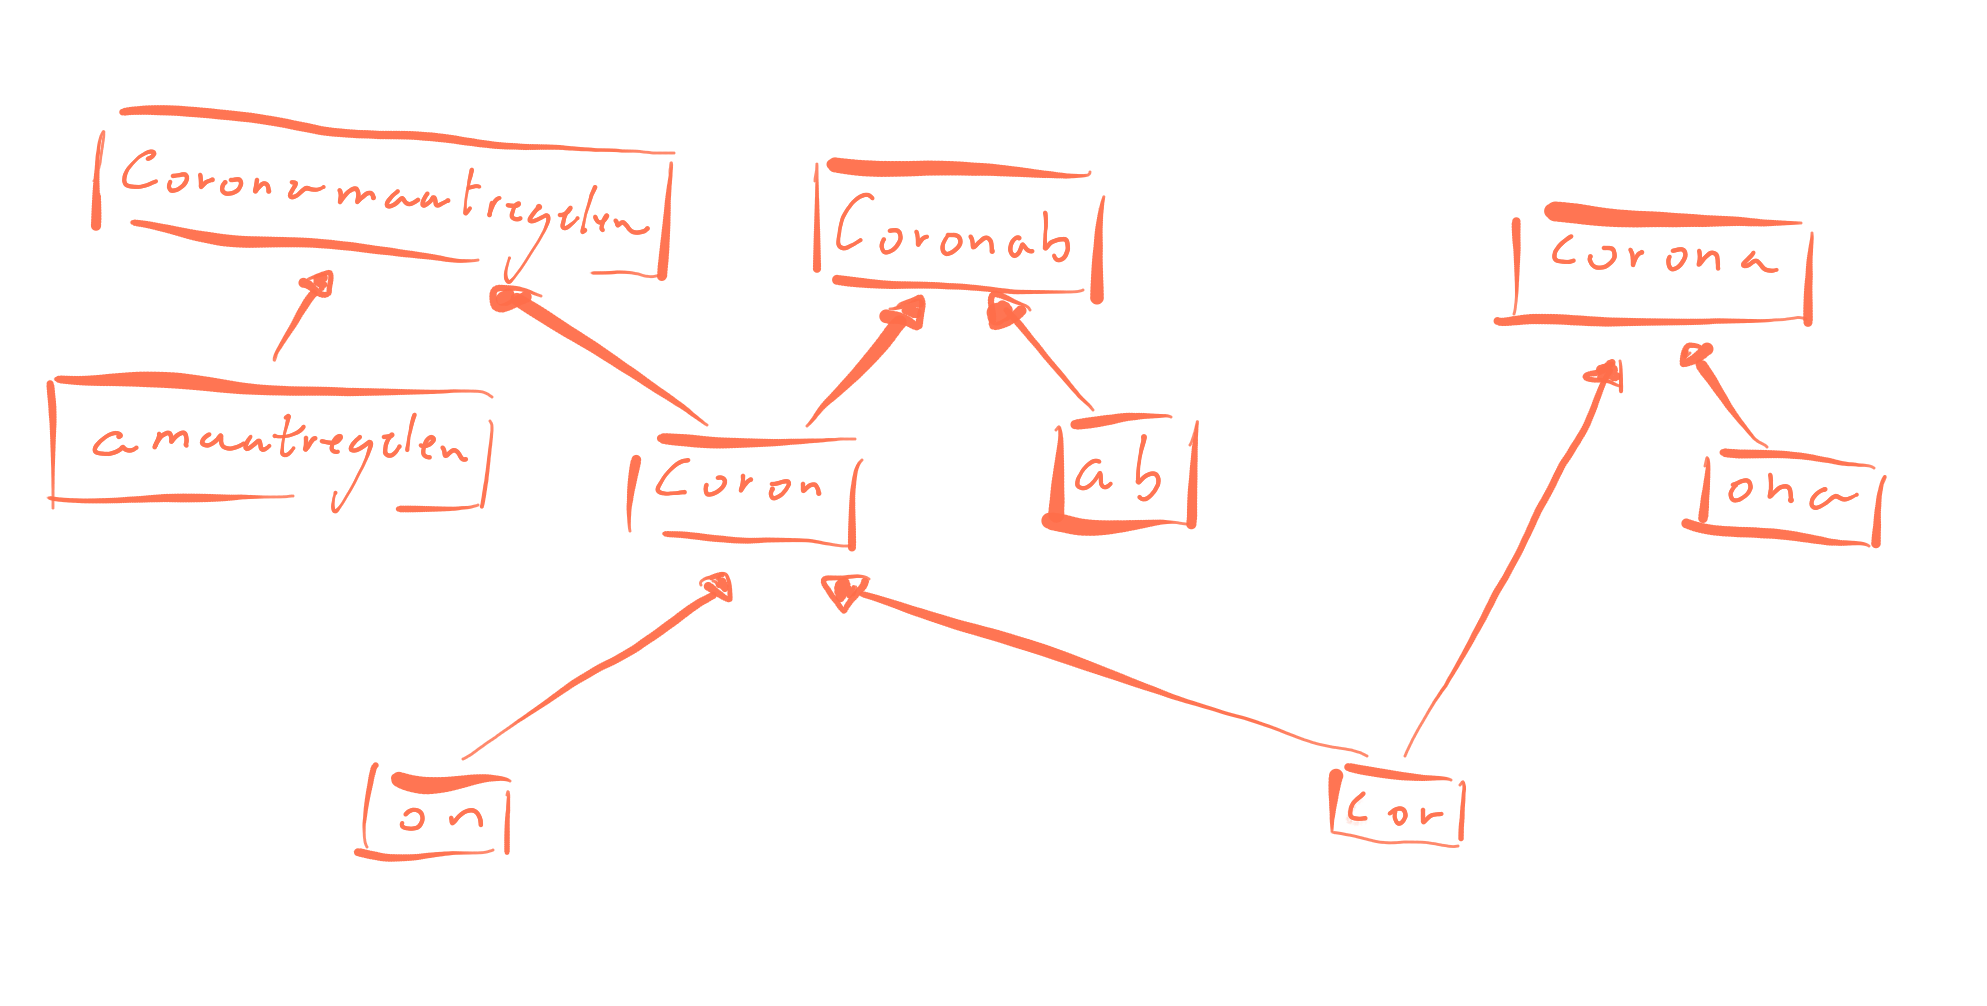 Coronamaatregelen
Coronab
Corona
amaatregelen
Coron
ab
ona
on
Cor